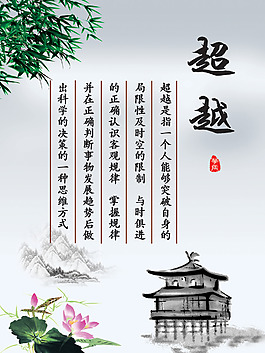 超越
超越是指一个人能够突破自身的
局限性及时空的限制 与时俱进
的正确认识客观规律 掌握规律
并在正确判断事物发展趋势后做
出科学的决策的一种思维方式